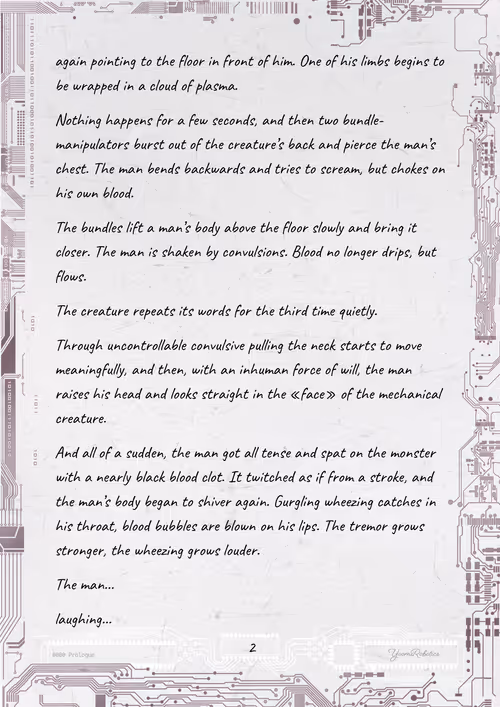 again pointing to the floor in front of him. One of his limbs begins to
be wrapped in a cloud of plasma.
Nothing happens for a few seconds, and then two bundle-
manipulators burst out of the creature's back and pierce the man's
chest. The man bends backwards and tries to scream, but chokes on
his own blood.
The bundles lift a man's body above the floor slowly and bring it
closer. The man is shaken by convulsions. Blood no longer drips, but
flows.
The creature repeats its words for the third time quietly.
Through uncontrollable convulsive pulling the neck starts to move
meaningfully, and then, with an inhuman force of will, the man
raises his head and looks straight in the «face» of the mechanical
creature.
And all of a sudden, the man got all tense and spat on the monster
with a nearly black blood clot. It twitched as if from a stroke, and
the man's body began to shiver again. Gurgling wheezing catches in
his throat, blood bubbles are blown on his lips. The tremor grows
stronger, the wheezing grows louder.
The man...
laughing...
Prologue
2